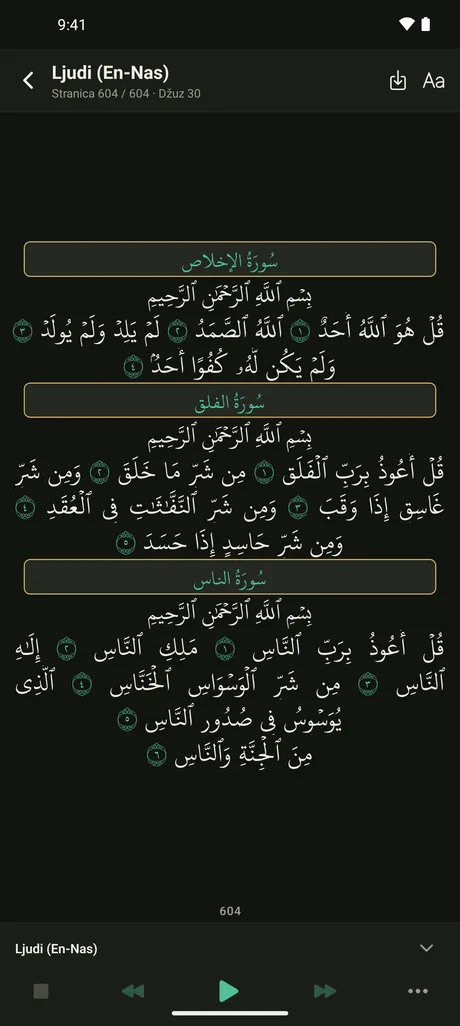 9:41
Ljudi (En-Nas)
Stranica 604 / 604 · Džuz 30
Aa
سُورَةُ الإخلاص
بِسۡمِ ٱللَّهِ ٱلرَّحۡمَٰنِ ٱلرَّحِيمِ
قُلۡ هُوَ ٱللَّهُ أَحَدٌ ١ ٱللَّهُ ٱلصَّمَدُ ٢ لَمۡ يَلِدۡ وَلَمۡ يُولَدۡ ٣
وَلَمۡ يَكُن لَّهُۥ كُفُوًا أَحَدُۢ ٤
سُورَةُ الفلق
بِسۡمِ ٱللَّهِ ٱلرَّحۡمَٰنِ ٱلرَّحِيمِ
قُلۡ أَعُوذُ بِرَبِّ ٱلۡفَلَقِ ١ مِن شَرِّ مَا خَلَقَ ٢ وَمِن شَرِّ
غَاسِقٍ إِذَا وَقَبَ ٣ وَمِن شَرِّ ٱلنَّفَّٰثَٰتِ فِي ٱلۡعُقَدِ ٤
وَمِن شَرِّ حَاسِدٍ إِذَا حَسَدَ ٥
سُورَةُ الناس
بِسۡمِ ٱللَّهِ ٱلرَّحۡمَٰنِ ٱلرَّحِيمِ
قُلۡ أَعُوذُ بِرَبِّ ٱلنَّاسِ ١ مَلِكِ ٱلنَّاسِ ٢ إِلَٰهِ
ٱلنَّاسِ ٣ مِن شَرِّ ٱلۡوَسۡوَاسِ ٱلۡخَنَّاسِ ٤ ٱلَّذِي
يُوَسۡوِسُ فِي صُدُورِ ٱلنَّاسِ ٥
مِنَ ٱلۡجِنَّةِ وَٱلنَّاسِ ٦
604
Ljudi (En-Nas)